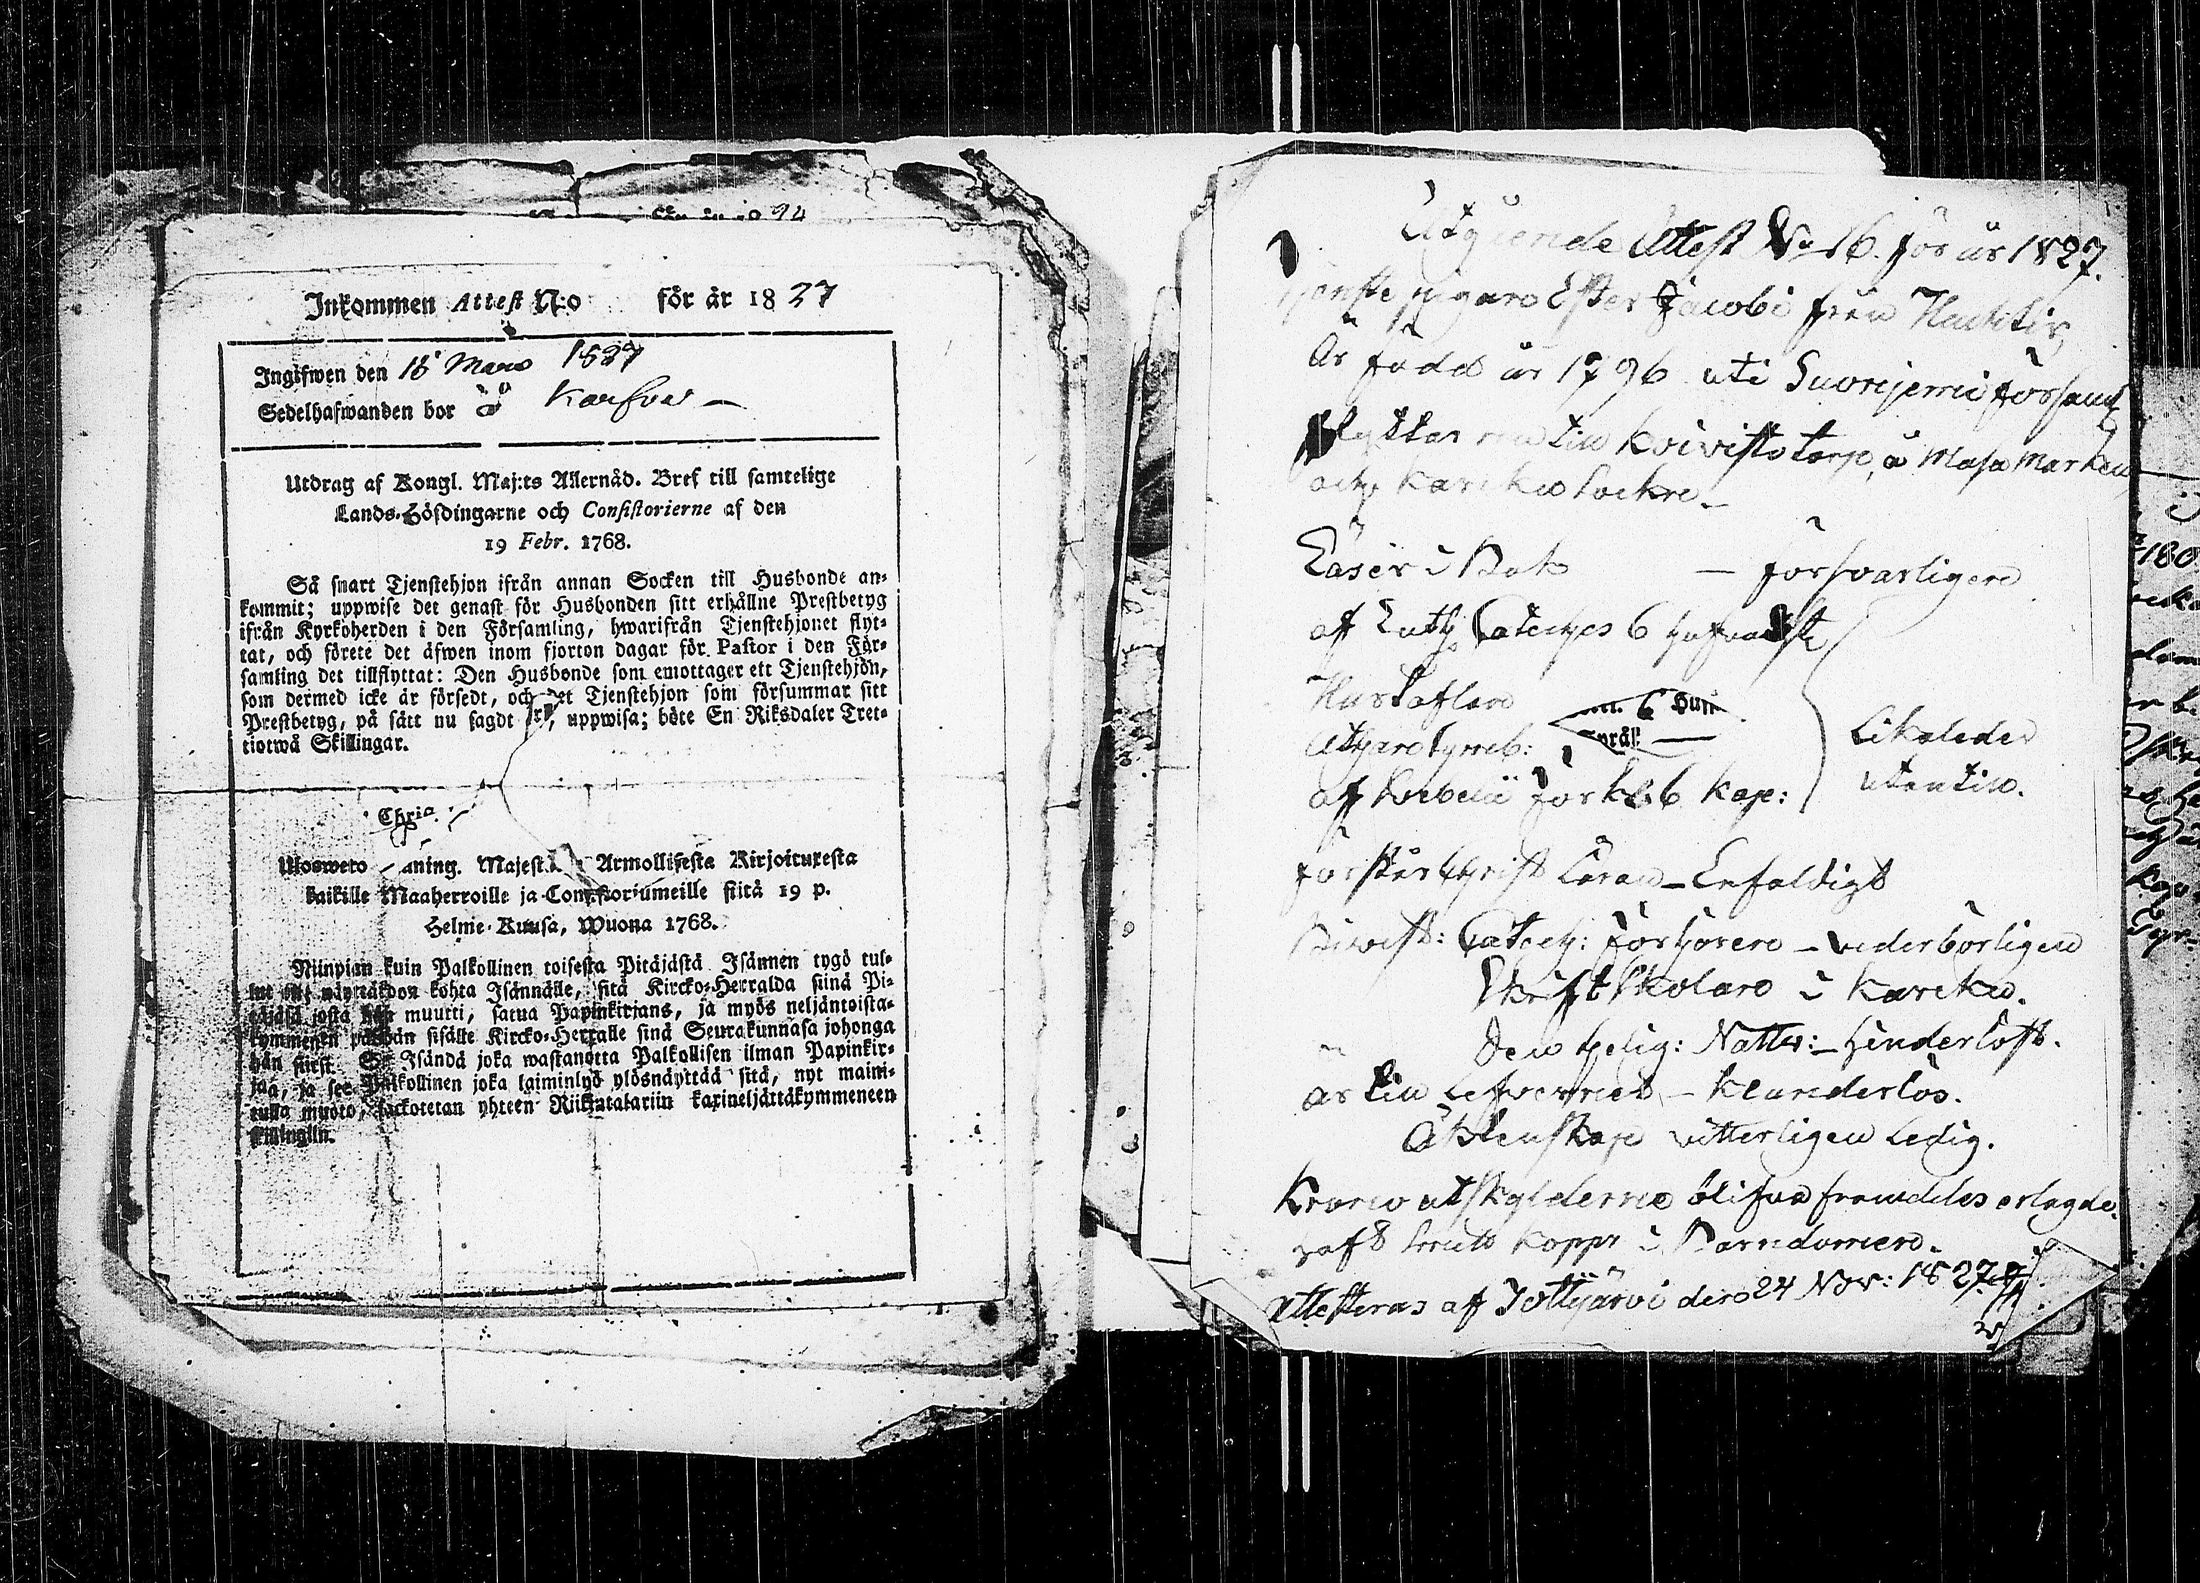 Inkommen Attest N:o för år 1827
Ingifwen den 18 Mars 1827
Sedelhafwanden bor å Karfvia —
Utdrag af Kongl. Maj:ts Allernåd. Bref till samtelige
Lands-Höfdingarne och Consistorierne af den
19 Febr. 1768.
Så snart Tjenstehjon ifrån annan Socken till Husbonde an-
kommit; uppwise det genast för Husbonden sitt erhållne Prestbetyg
ifrån Kyrkoherden i den Församling, hwarifrån Tjenstehjonet flyt-
tat, och förete det äfwen inom fjorton dagar för Pastor i den För-
samling det tillflyttat: Den Husbonde som emottager ett Tjenstehjon,
som dermed icke är försedt, och det Tjenstehjon som försummar sitt
Prestbetyg, på sätt nu sagdt är, uppwisa; böte En Riksdaler Tret-
tiotwå Skillingar.
Chria.
Ulosweto aning. Majest. Armollisesta Kirjoituxesta
kaikille Maaherroille ja Consistoriumeille siitä 19 p.
Helme-Kuusa, Wuona 1768.
Niinpian kuin Palkollinen toisesta Pitäjästä Isännen tygö tul-
lut on, näyttäkön kohta Isännälle, sitä Kircko-Herralda siinä Pi-
täjäsä josta hän muutti, saatua Papinkirjans, ja myös neljäntoista-
kymmenen päiwän sisälle Kircko-Herralle siinä Seurakunnasa johonga
hän siirst. Se Isändä joka wastanotta Palkollisen ilman Papinkir-
jaa, ja see Palkollinen joka laiminlyö ylösnäyttää sitä, nyt maini-
tulla muoto, sackotetan yhteen Riikintalariin kaxineljättäkymmeneen
skillingiin.
Utgående Attest No 16. för år 1827.
Tjenste pigan Ester Jacobi från
Är född år 1796 uti Suonijemi församl
flyttar nu till Koivisto torp, å
och Karcku Sockn. —
Läser i Bok — försvarligen
af Luth Cateches 6 hufvudst
Hustaflan
Athan Symb:
af Svebelii förkl. 6 Kap:
Likaledes
utantill.
förstår Christ Läran — Enfaldigt
Bivist: Catech: förhören — vederbörligen
Skriftskolan i Karcku.
Den Helig: Nattv: — hinderlöst.
är till Lefvernet — klanderlös.
Äktenskap vitterligen Ledig.
Krono utskylderna blifva framdeles erlagde.
haft Koppr i Barndomen.
Attesteras af den 24 Nov: 1827.